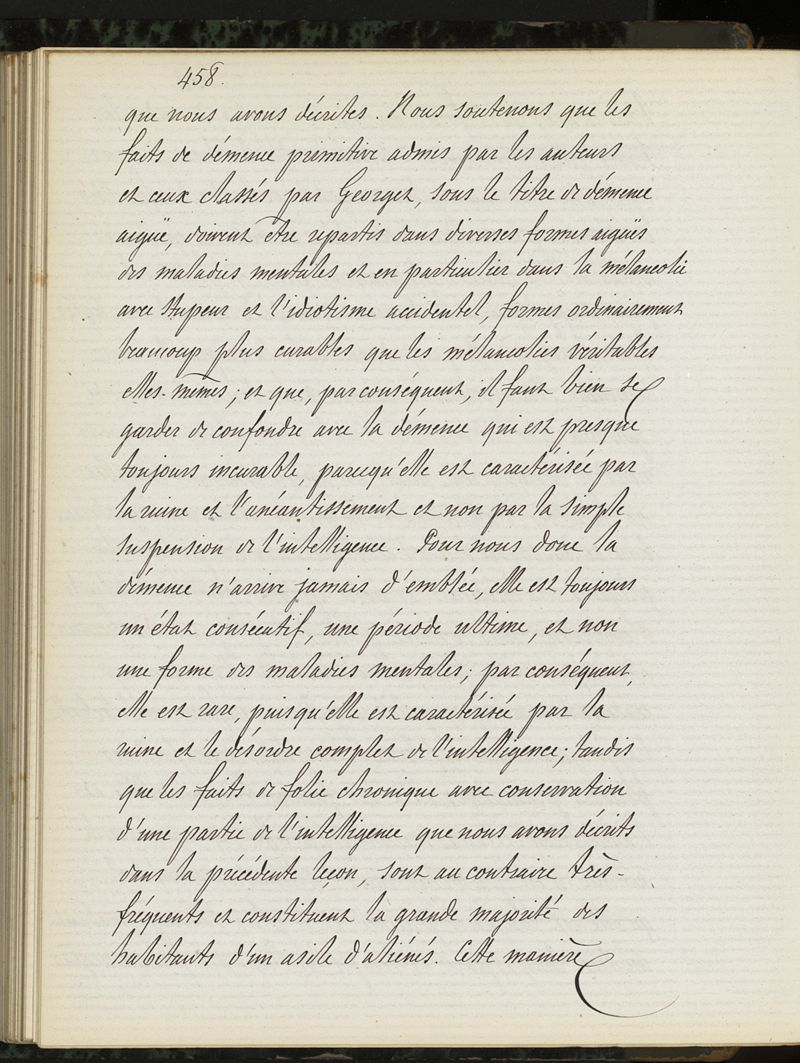 458.
que nous avons décrites. Nous soutenons que les
faits de démence primitive admis par les auteurs
et ceux classés par Georget, sous le titre de démence
aigüe, doivent etre repartis dans diverses formes aigües
des maladies mentales et en particulier dans la mélancolie
avec stupeur et l'idiotisme accidentel, formes ordinairement
beaucoup plus curables que les mélancolies véritables
elles-mêmes; et que, par conséquent, il faut bien se
garder de confondre avec la démence qui est presque
toujours incurable, parcequ'elle est caractérisée par
la ruine et l'anéantissement et non par la simple
suspension de l'intelligence. Pour nous donc la
démence n'arrive jamais d'emblée, elle est toujours
un état consécutif, une période ultime, et non
une forme des maladies mentales; par conséquent,
elle est rare, puisqu'elle est caractérisée par la
ruine et le désordre complet de l'intelligence; tandis
que les faits de folie chronique avec conservation
d'une partie de l'intelligence que nous avons décrits
dans la précédente leçon, sont au contraire très-
fréquents et constituent la grande majorité des
habitants d'un asile d'aliénés. Cette manière